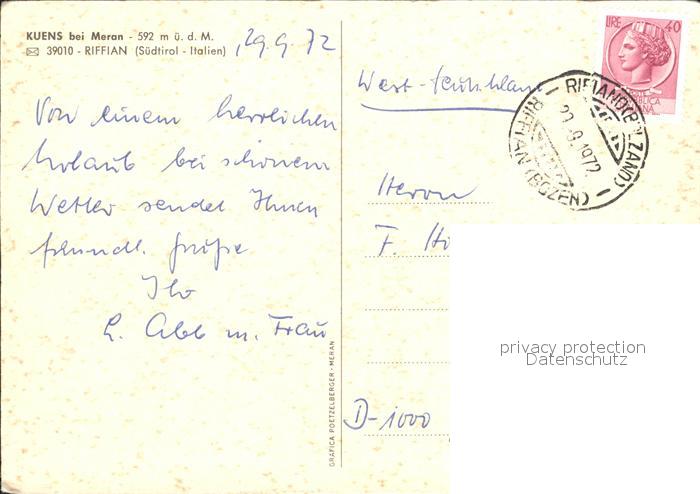 KUENS bei Meran - 592 m ü. d. M.
39010 - RIFFIAN (Südtirol - Italien)
, 29. 9. 72
Von einem herrlichen
Urlaub bei schönem
Wetter sendet Ihnen
freundl. Grüße
Ihr
L. Abb m. Frau
GRAFICA POETZELBERGER - MERAN
LIRE 40
RIFIANO (BOLZANO)
29.-9.1972
RIFFIAN (BOZEN)
West-
Herrn
F. Hö
D-1000
privacy protection
Datenschutz